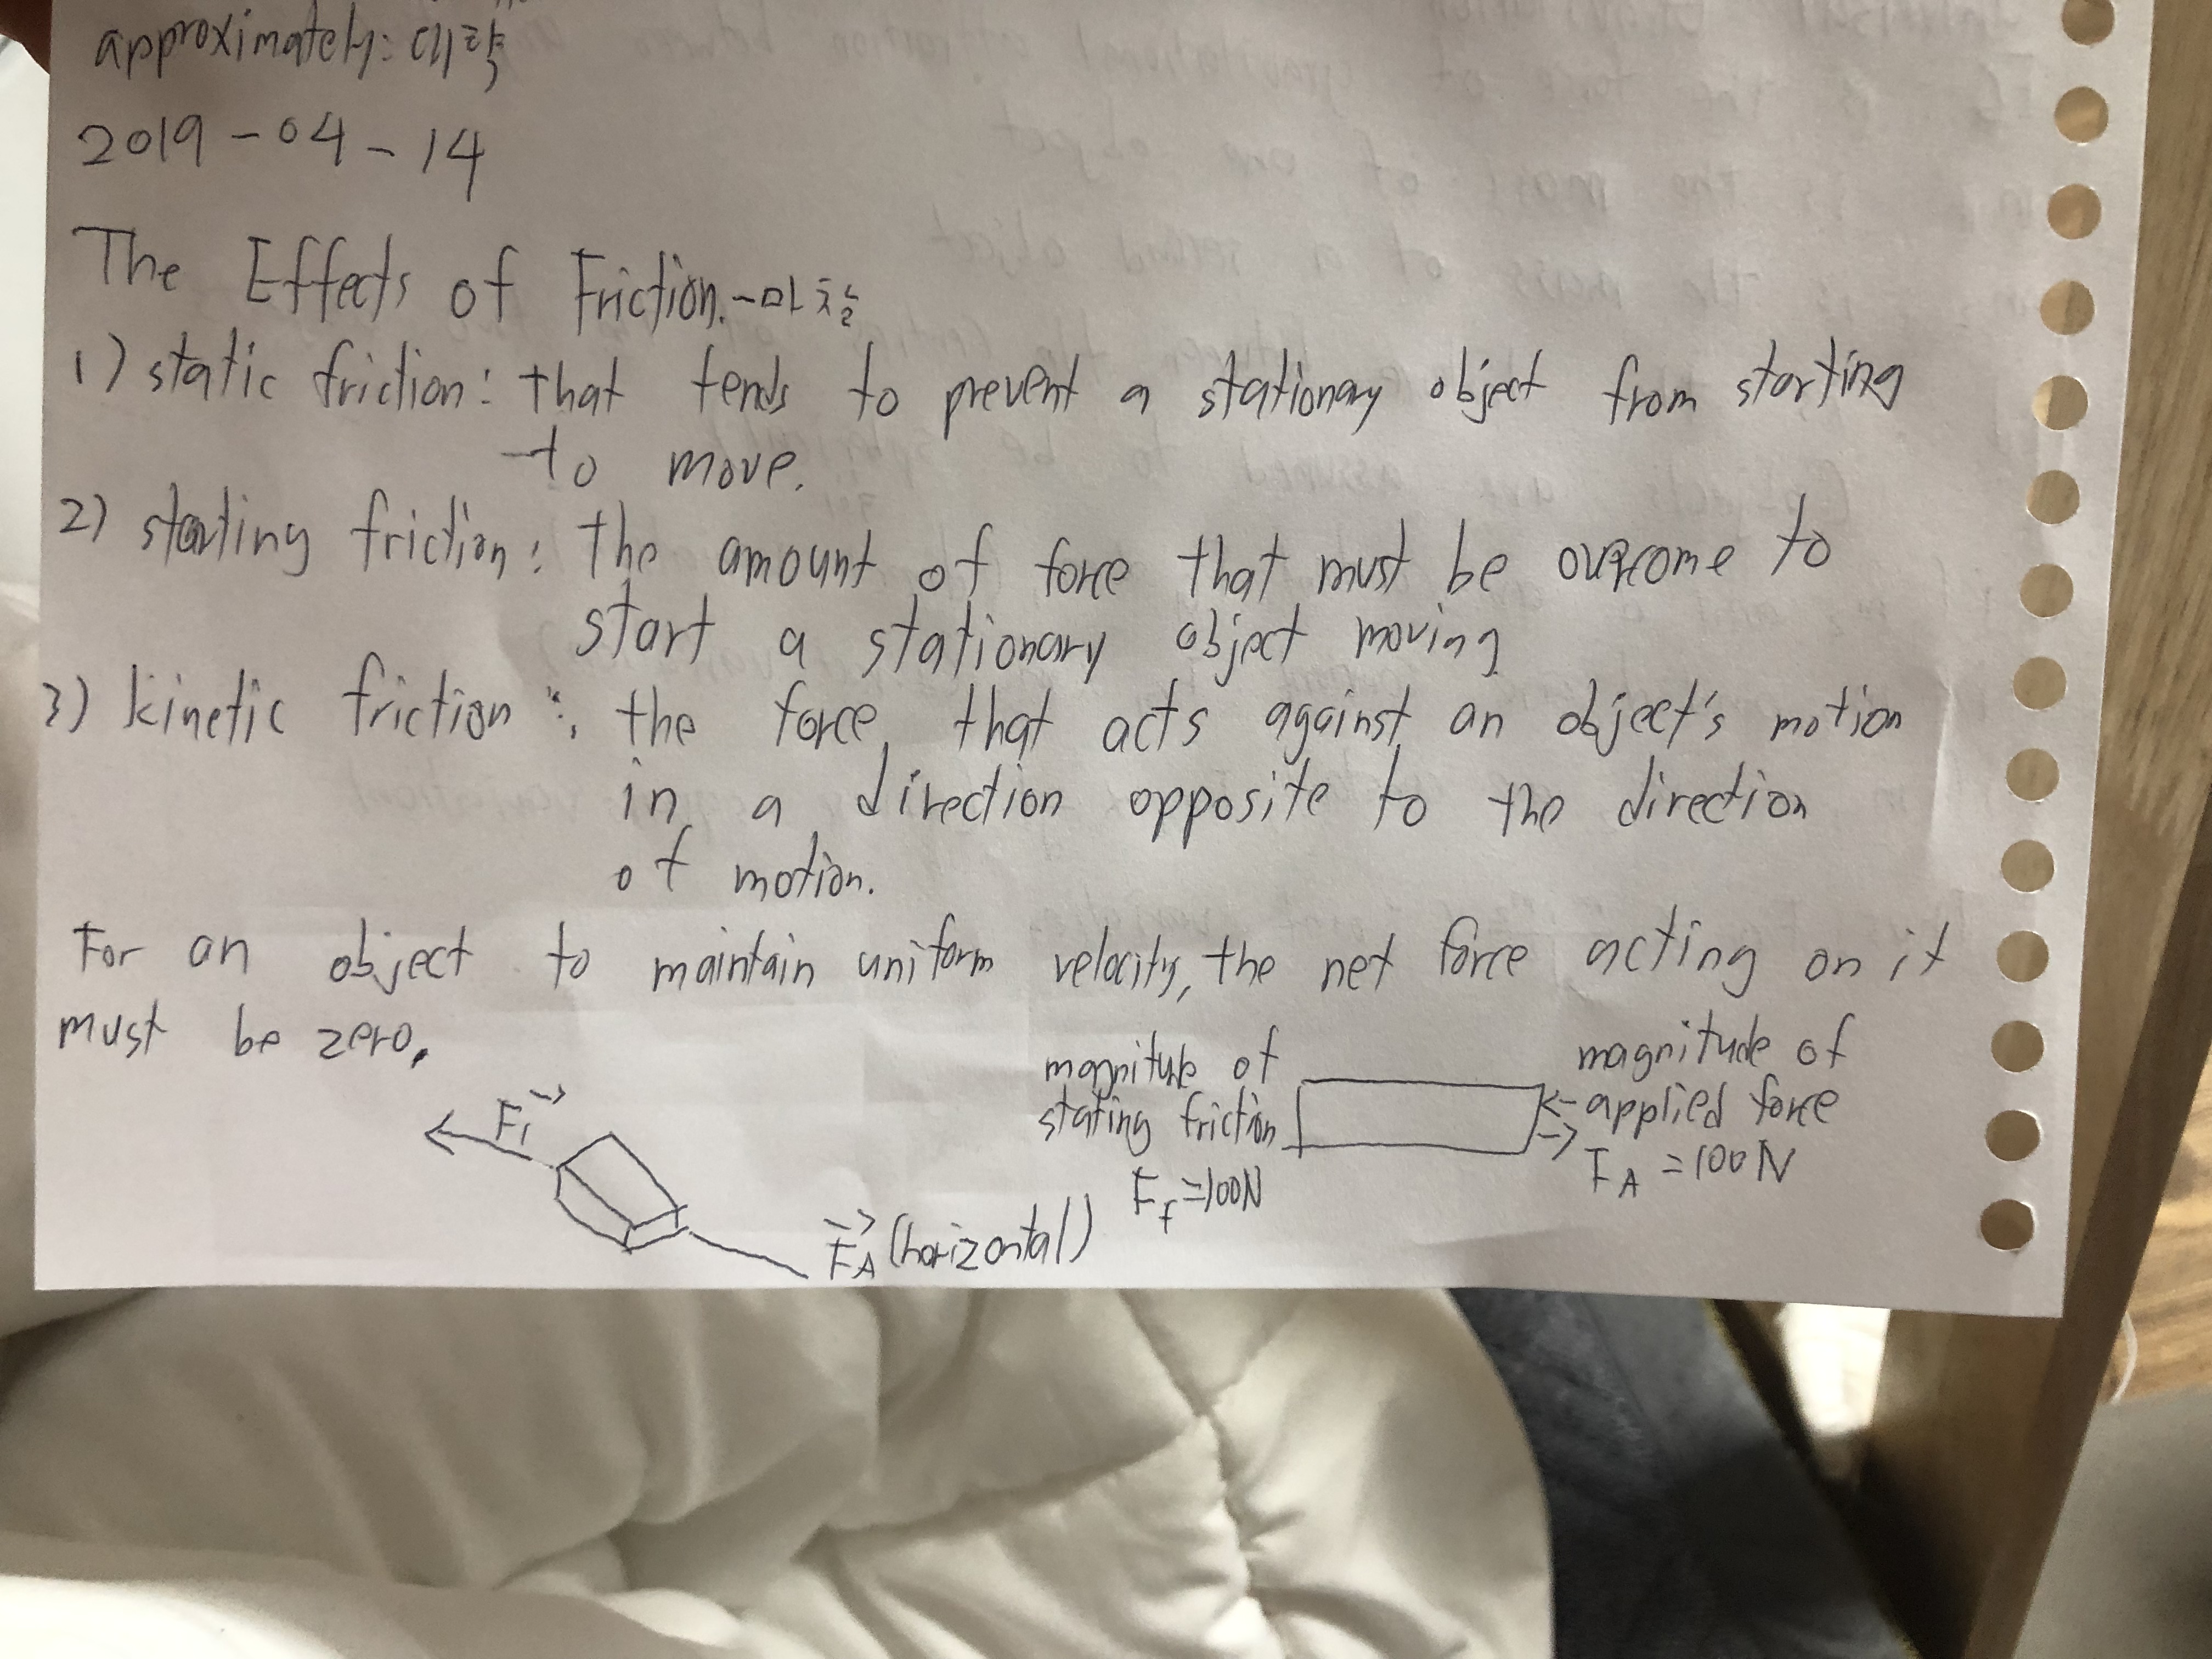 approximately: 대략
2019-04-14
The Effects of Friction.-마찰
1) static friction: that tends to prevent a stationary object from starting
to move.
2) starting friction: the amount of force that must be overcome to
start a stationary object moving
3) kinetic friction: the force that acts against an object's motion
in a direction opposite to the direction
of motion.
For an object to maintain uniform velocity, the net force acting on it
must be zero.
F₁
F_A (horizontal)
magnitude of
stating friction
F_f=100N
magnitude of
applied force
F_A=100N